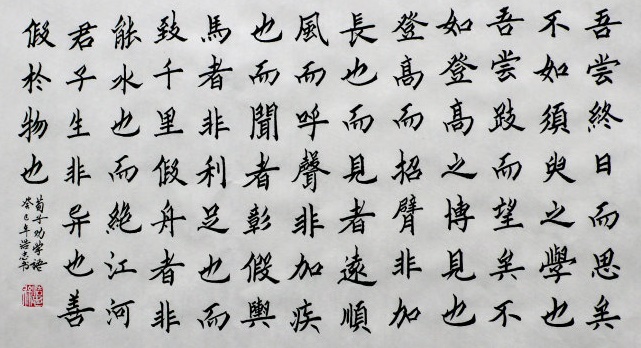 吾嘗終日而思矣
不如須臾之學也
吾嘗跂而望矣不
如登高之博見也
登高而招臂非加
長也而見者遠順
風而呼聲非加疾
也而聞者彰假輿
馬者非利足也而
致千里假舟者非
能水也而絕江河
君子生非异也善
假於物也
荀子劝學語
癸巳年浩志書